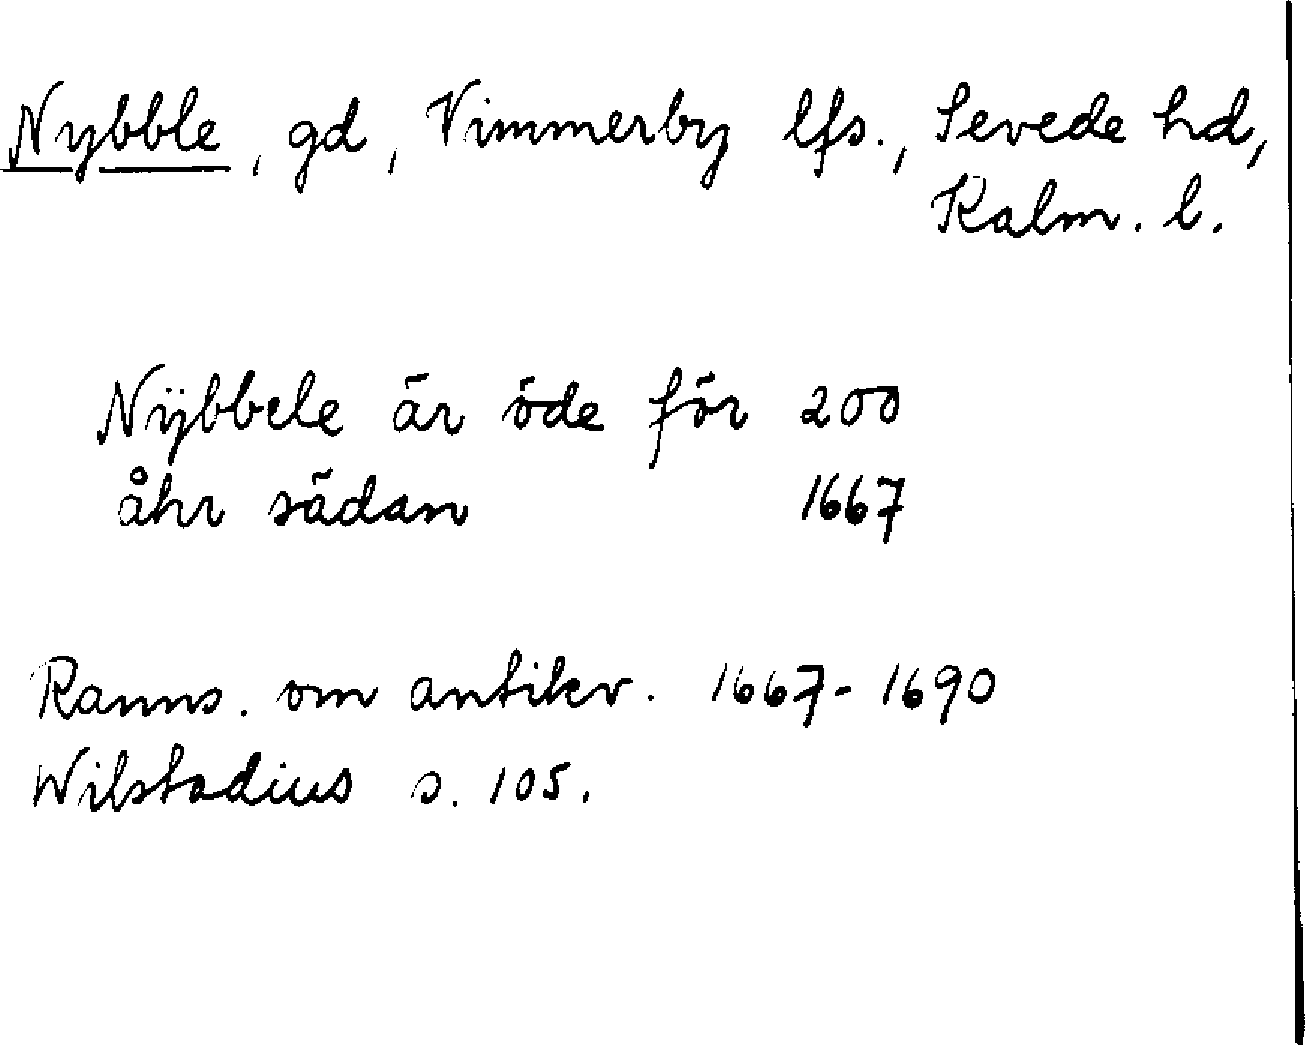 Nybble, gd, Vimmerby lfs., Sevede hd,
Kalm. l.
Nÿbbele är öde för 200
åhr sädan 1667
Ranns. om antikv. 1667-1690
Wilstadius s. 105.